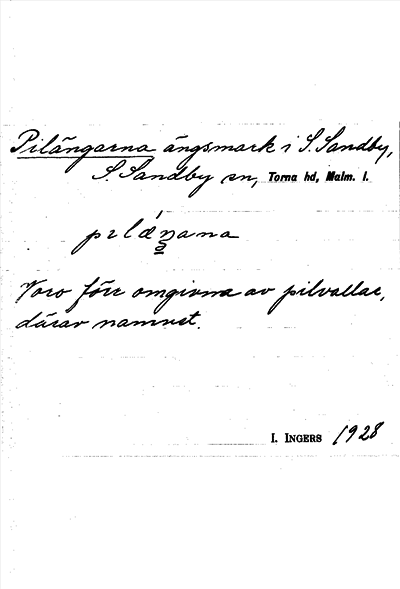 Pilängarna ängsmark i S. Sandby,
S. Sandby sn, Torna hd, Malm. l.
Voro förr omgivna av pilvallar,
därav namnet.
I. INGERS 1928